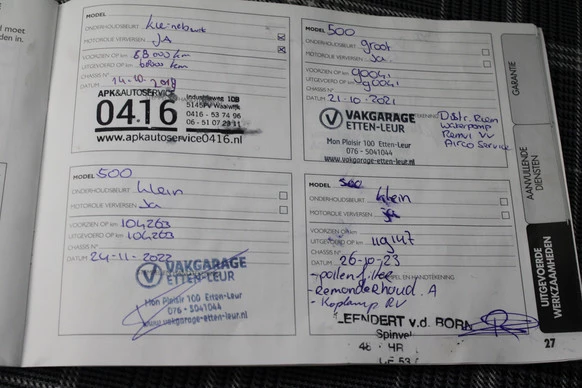 l moet
den in.
ONDERHOUDSBEURT
MOTOROLIE VERVERSEN JA
VOORZIEN OP km 88000 km
UITGEVOERD OP km
CHASSIS N°
DATUM 14-10-2019
APK&AUTOSERVICE
0416
Industrieweg 10B
5145PV Waalwijk
0416 - 53 74 96
www.apkautoservice0416.nl
MODEL 500
ONDERHOUDSBEURT groot
MOTOROLIE VERVERSEN Ja
VOORZIEN OP km
UITGEVOERD OP km
CHASSIS N°
DATUM 21-10-2021
VAKGARAGE
ETTEN-LEUR
Mon Plaisir 100 Etten-Leur
076 - 5041044
www.vakgarage-etten-leur.nl
Distr. Riem
waterpomp
Remvl VV
Airco Service
MODEL 500
ONDERHOUDSBEURT klein
MOTOROLIE VERVERSEN Ja
VOORZIEN OP km 104263
UITGEVOERD OP km 104263
CHASSIS N°
DATUM 24-11-2022
VAKGARAGE
ETTEN-LEUR
Mon Plaisir 100 Etten-Leur
076 - 5041044
www.vakgarage-etten-leur.nl
MODEL 500
ONDERHOUDSBEURT klein
MOTOROLIE VERVERSEN ja
VOORZIEN OP km
UITGEVOERD OP km 119147
CHASSIS N°
DATUM 26-10-23
STEMPEL EN HANDTEKENING
- pollenfilter
- Remonderhoud. A
- Koplamp RV
LEENDERT v.d. BORN
Spinvel
46 4R
GARANTIE
AANVULLENDE
DIENSTEN
UITGEVOERDE
WERKZAAMHEDEN
27